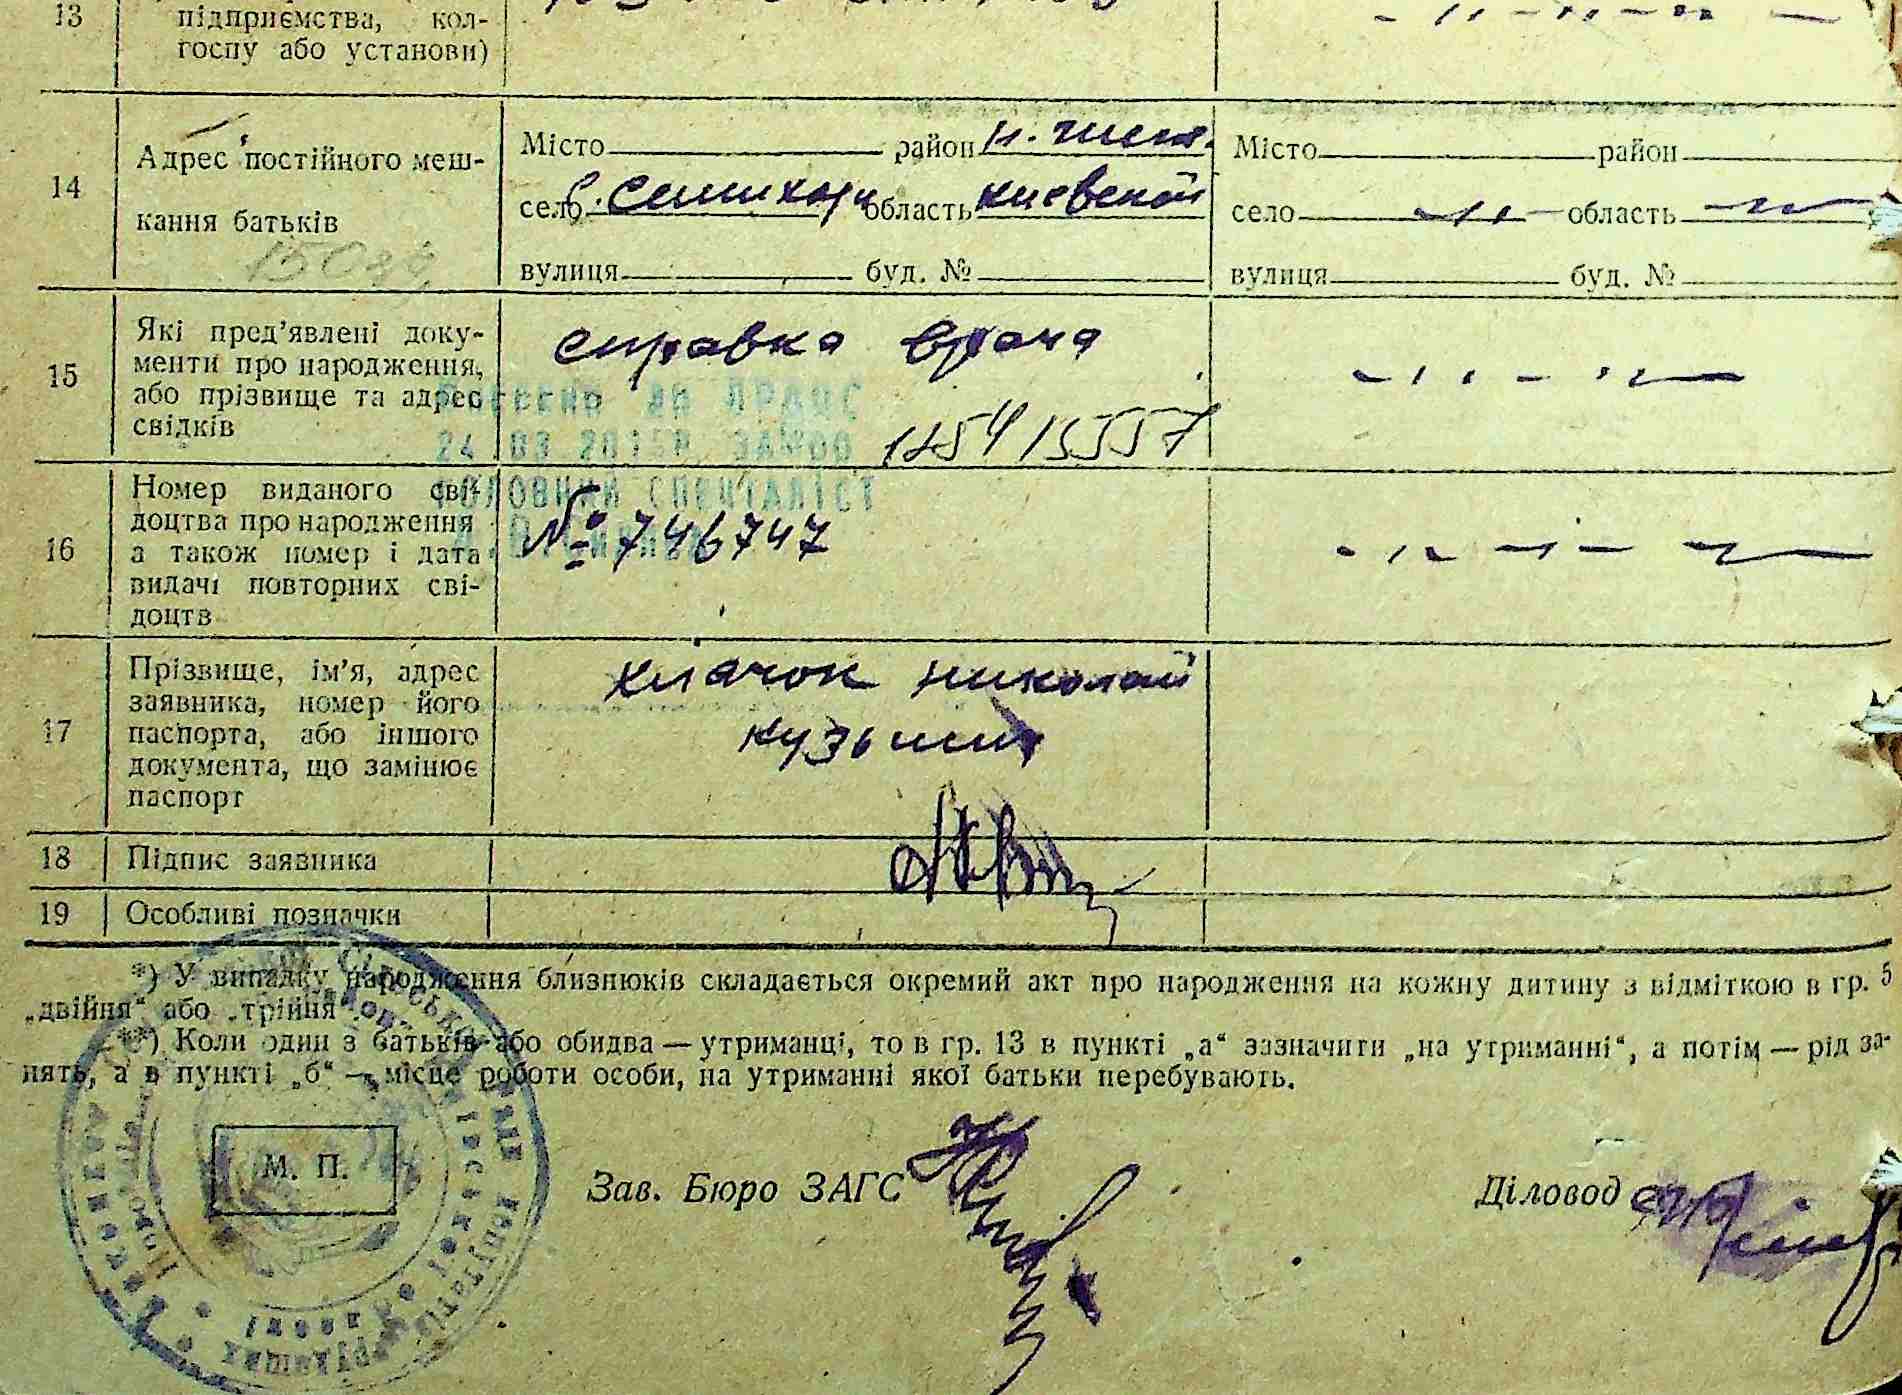 13 підприємства, кол-
госпу або установи)
14 Адрес постійного меш-
кання батьків
Місто район
село область Киевской
вулиця буд. №
Місто район
село -"- область -"-
вулиця буд. №
15 Які пред'явлені доку-
менти про народження,
або прізвище та адрес
свідків
справка врача
Внесено до ДРАЦС
24 03 ЗАМОО
ГОЛОВНИЙ СПЕЦІАЛІСТ
16 Номер виданого сві-
доцтва про народження
а також номер і дата
видачі повторних сві-
доцтв
№ 746747
17 Прізвище, ім'я, адрес
заявника, номер його
паспорта, або іншого
документа, що замінює
паспорт
Клачок Николай
Кузьмич
18 Підпис заявника
19 Особливі позначки
*) У випадку народження близнюків складається окремий акт про народження на кожну дитину з відміткою в гр. 5
„двійня“ або „трійня“.
**) Коли один з батьків або обидва — утриманці, то в гр. 13 в пункті „а“ зазначити „на утриманні“, а потім — рід за-
нять, а в пункті „б“ — місце роботи особи, на утриманні якої батьки перебувають.
М. П.
Зав. Бюро ЗАГС
Діловод